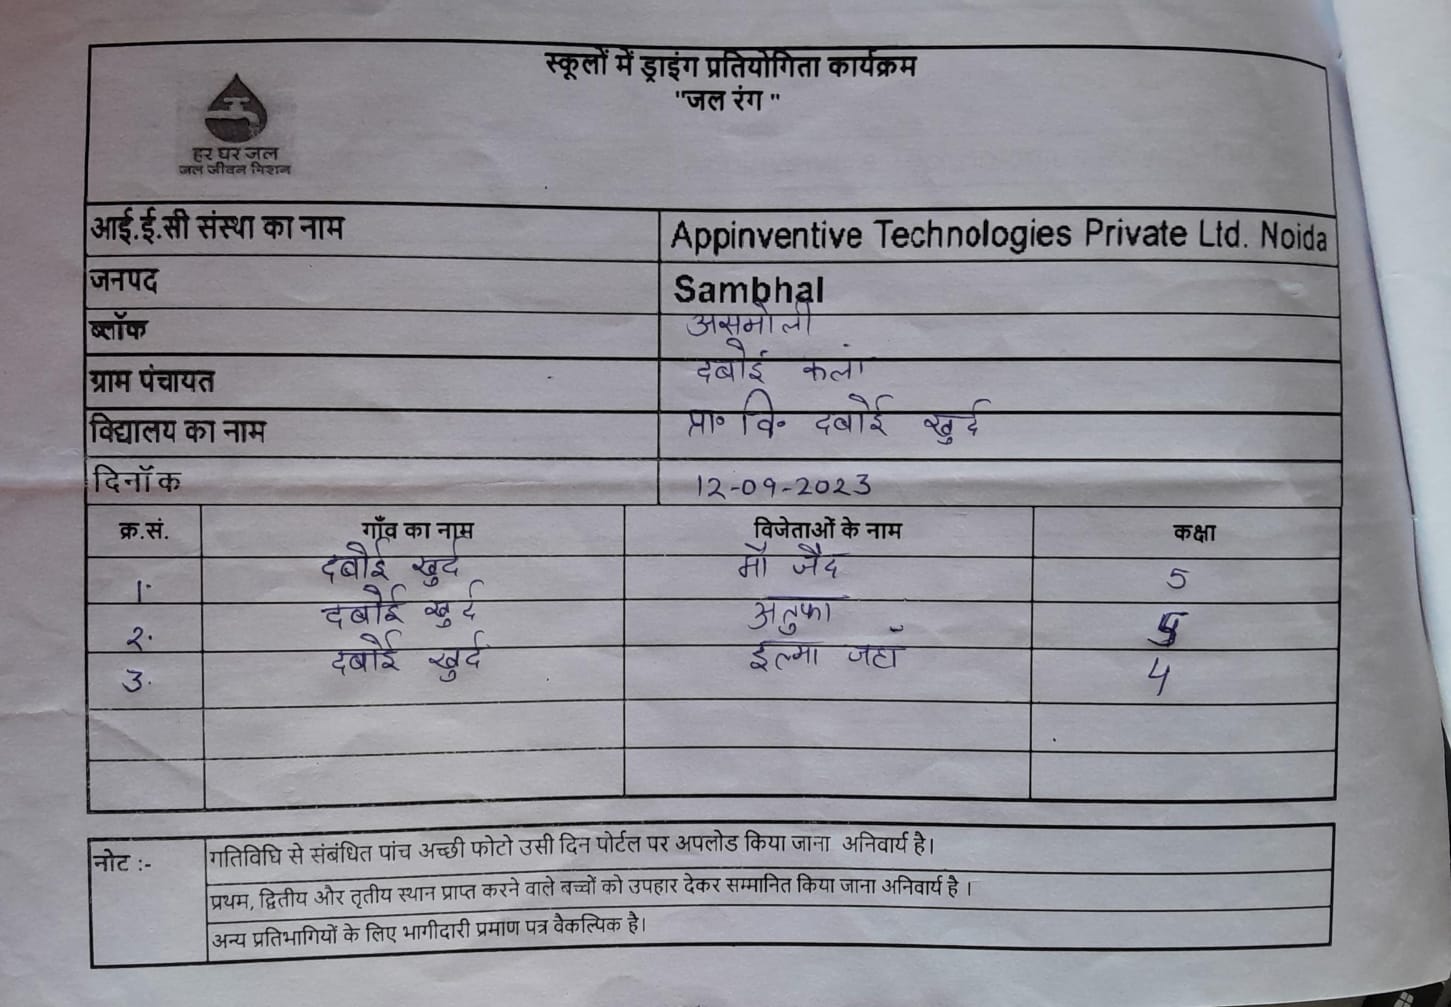 स्कूलों में ड्राइंग प्रतियोगिता कार्यक्रम
"जल रंग "
हर घर जल
जल जीवन मिशन
आई.ई.सी संस्था का नाम Appinventive Technologies Private Ltd. Noida
जनपद Sambhal
ब्लॉक असमोली
ग्राम पंचायत दबोई कलां
विद्यालय का नाम प्रा॰ वि॰ दबोई खुर्द
दिनॉक 12-09-2023
क्र.सं. गाँव का नाम विजेताओं के नाम कक्षा
1. दबोई खुर्द मौ जैद 5
2. दबोई खुर्द अतुफा 5
3. दबोई खुर्द इल्मा जहाँ 4
नोट :- गतिविधि से संबंधित पांच अच्छी फोटो उसी दिन पोर्टल पर अपलोड किया जाना अनिवार्य है।
प्रथम, द्वितीय और तृतीय स्थान प्राप्त करने वाले बच्चों को उपहार देकर सम्मानित किया जाना अनिवार्य है ।
अन्य प्रतिभागियों के लिए भागीदारी प्रमाण पत्र वैकल्पिक है।